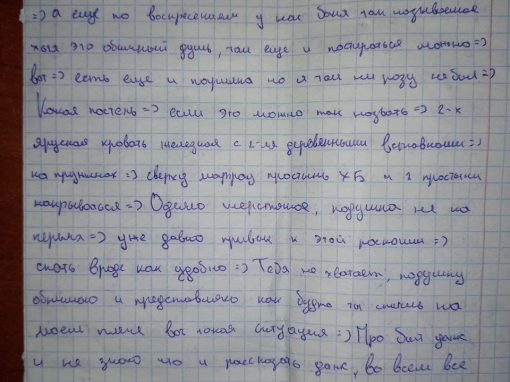 =) А еще по воскресеньям у нас баня так называемая
хотя это обычный душ, там еще и постираться можно =)
вот =) есть еще и парилка но я там ни разу не был =)
Какая постель =) если это можно так назвать =) 2-х
ярусная кровать железная с 2-мя деревянными вставками =)
на пружинах =) сверху матрац простынь ХБ и 2 простыни
накрываться =) Одеяло шерстяное, подушка не из
перьев =) уже давно привык к этой роскоши =)
спать вроде как удобно =) Тебя не хватает, подушку
обнимаю и представляю как будто ты спишь на
моем плече вот такая ситуация =) Про быт даже
и не знаю что и рассказать даже, во всем всё